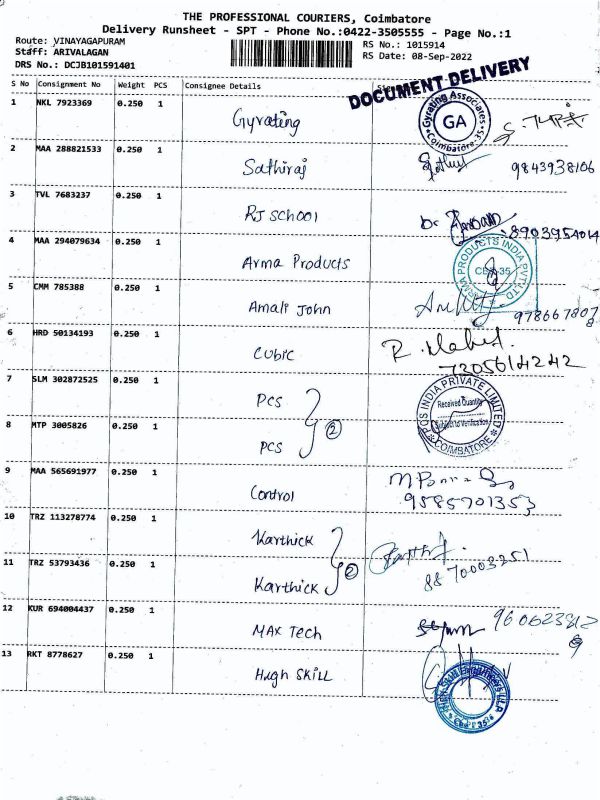 THE PROFESSIONAL COURIERS, Coimbatore
Delivery Runsheet - SPT - Phone No.:0422-3505555 - Page No.:1
Route: VINAYAGAPURAM
Staff: ARIVALAGAN
DRS No.: DCJB101591401
RS No.: 1015914
RS Date: 08-Sep-2022
DOCUMENT DELIVERY
S No Consignment No Weight PCS Consignee Details
1 NKL 7923369 0.250 1 Gyrating
Gyrating Associates GA Coimbatore-35
2 MAA 288821533 0.250 1 Sathiraj 9843938106
3 TVL 7683237 0.250 1 RJ SCHOOl 8903954014
4 MAA 294079634 0.250 1 Arma Products
ARMA PRODUCTS INDIA PVT LTD CBE-35
5 CMM 785388 0.250 1 Amali John 9786678078
6 HRD 50134193 0.250 1 CUBIC R. 7205614242
7 SLM 302872525 0.250 1 PCS
8 MTP 3005826 0.250 1 PCS 2
INDIA PRIVATE LIMITED Received Quantity Subject to Verification COIMBATORE
9 MAA 565691977 0.250 1 Control 9585701353
10 TRZ 113278774 0.250 1 Karthick
11 TRZ 53793436 0.250 1 Karthick 2 8870003251
12 KUR 694004437 0.250 1 MAX Tech 9606238128
13 RKT 8778627 0.250 1 HIGH SKILL